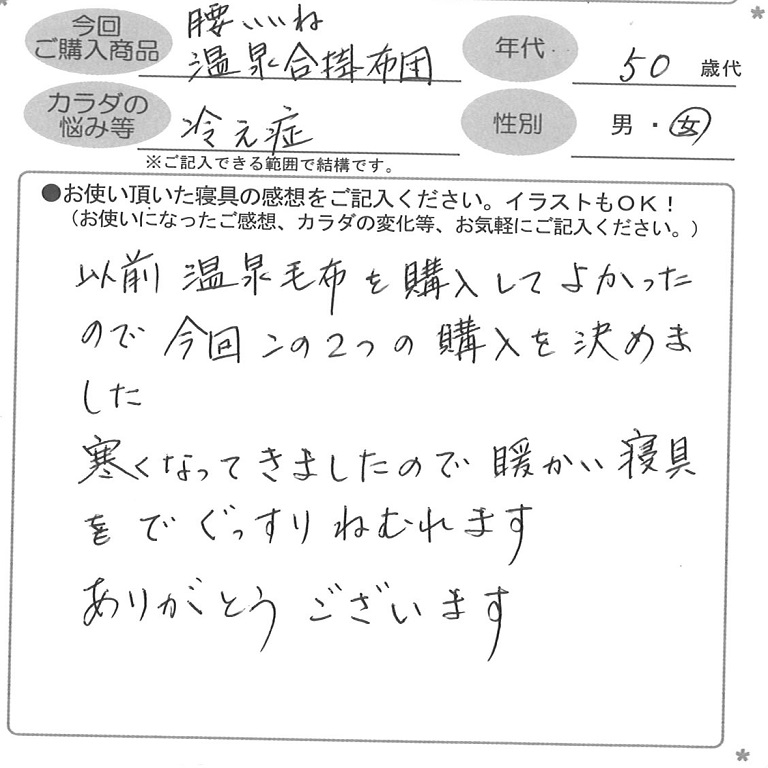 今回
ご購入商品
腰いいね
温泉合掛布団
年代
50 歳代
カラダの
悩み等
冷え症
性別
男・女
※ご記入できる範囲で結構です。
●お使い頂いた寝具の感想をご記入ください。イラストもOK！
（お使いになったご感想、カラダの変化等、お気軽にご記入ください。）
以前 温泉毛布を購入してよかった
ので 今回 この2つの購入を決めま
した
寒くなってきましたので 暖かい寝具
でぐっすりねむれます
ありがとうございます